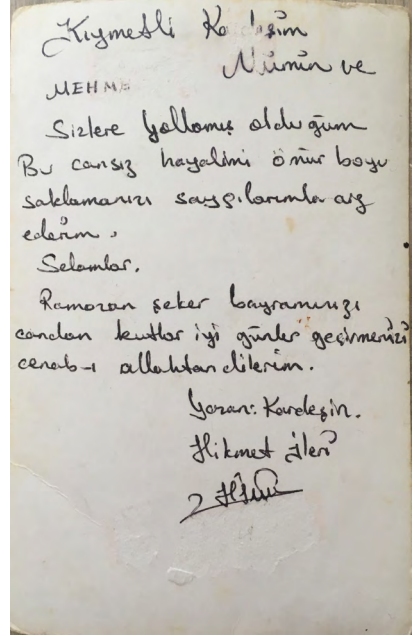 Kıymetli Kardeşim
Mümün ve
MEHME
Sizlere Yollamış olduğum
Bu cansız hayalimi ömür boyu
saklamanızı saygılarımla arz
ederim.
Selamlar.
Ramazan şeker bayramınızı
candan kutlar iyi günler geçirmenizi
cenab-ı allahtan dilerim.
Yazan: Kardeşin.
Hikmet İleri